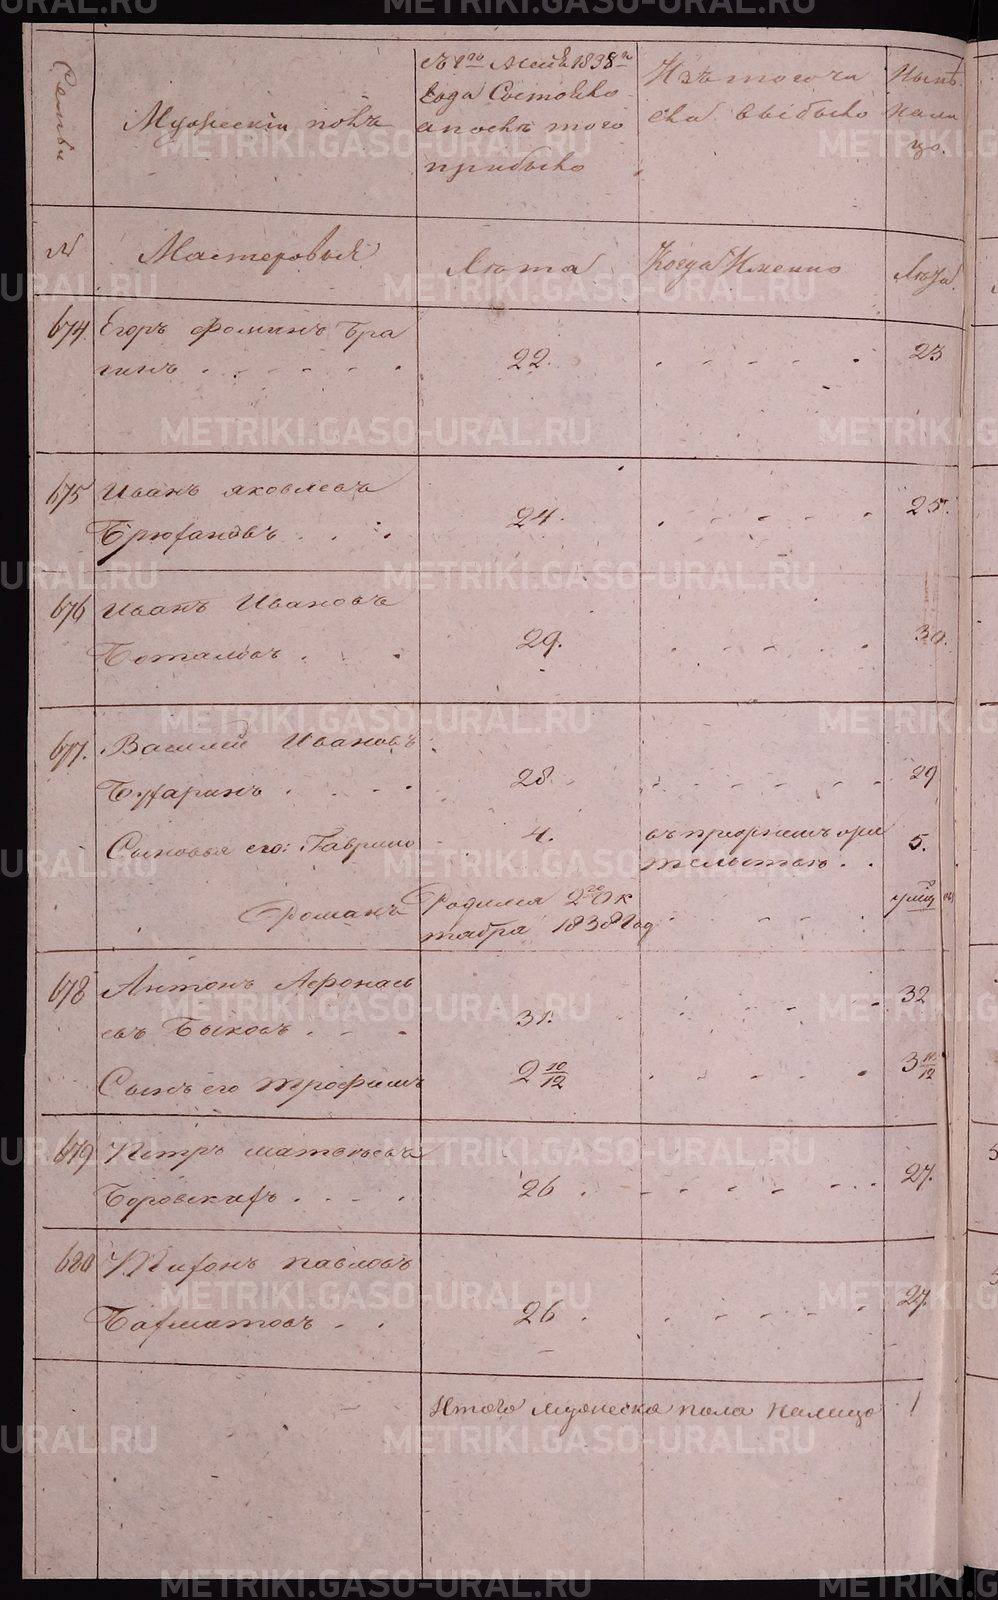 Семьи
Мужескiй полъ
Съ 1го Маiя 1838го
Года Состояло
а послѣ того
прибыло
Изъ того чи
сла выбыло
Нынѣ
на ли
цо.
№
Мастеровыя
Лѣта
Когда Именно
Лѣта.
674. Егоръ Фоминъ Бра
гинъ . . . . . . 22. . . . . . 23
675 Иванъ Яковлевъ
Брюхановъ . . . 24. . . . . . 25.
676 Иванъ Ивановъ
Боталовъ . . . 29. . . . . . 30.
677. Василiй Ивановъ
Бухаринъ . . . . 28. . . . . . 29
Сыновья его: Гаврило 4. въ прежнемъ жи
тельствѣ . . 5.
Романъ Родился 2го Ок
тября 1838 Год
678 Антонъ Афонась
евъ Быковъ . . . 31. . . . . . 32
Сынъ его Трофимъ 2 10/12 . . . . . 3 10/12
679 Петръ Матвѣевъ
Боровскихъ . . . . 26 . . . . . . . 27.
680 Тихонъ Павловъ
Бахматовъ . . 26 . . . . . . 27.
Итого мужеска пола налицо
METRIKI.GASO-URAL.RU